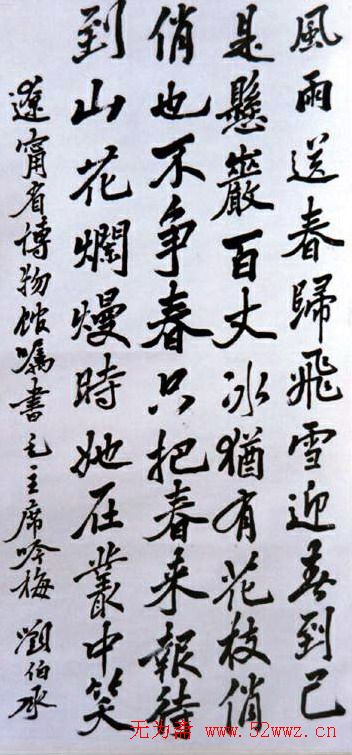 風雨送春歸飛雪迎春到已
是懸巖百丈冰猶有花枝俏
俏也不争春只把春来報待
到山花爛熳時她在叢中笑
遼甯省博物館嘱書毛主席咏梅 劉伯承
无为斋 www.52wwz.cn